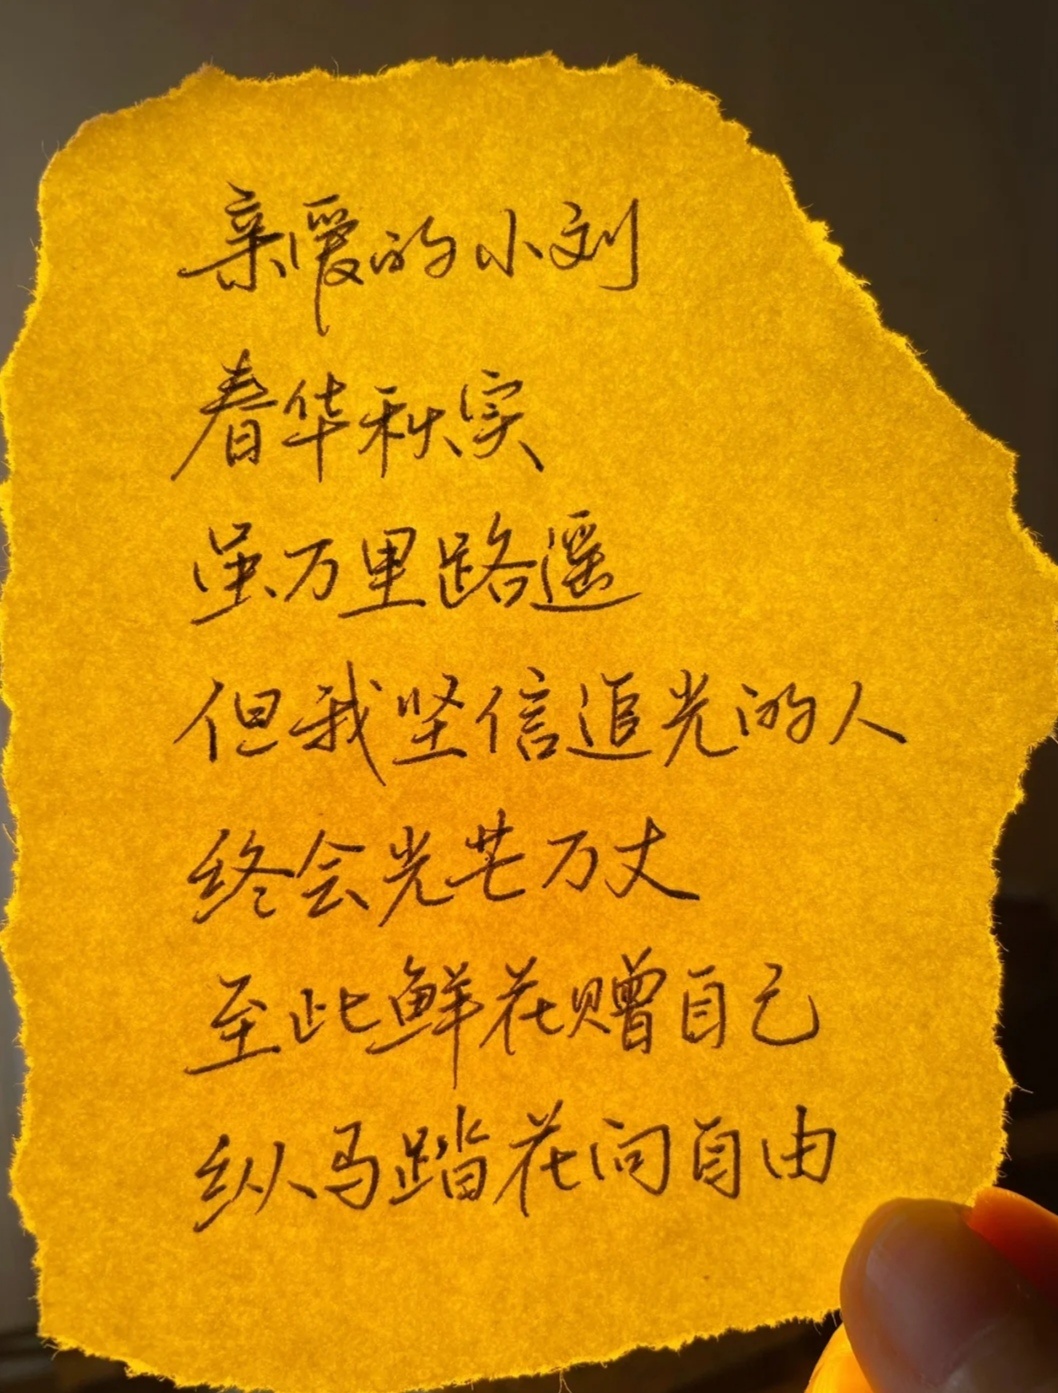 亲爱的小刘
春华秋实
虽万里路遥
但我坚信追光的人
终会光芒万丈
至此鲜花赠自己
纵马踏花向自由